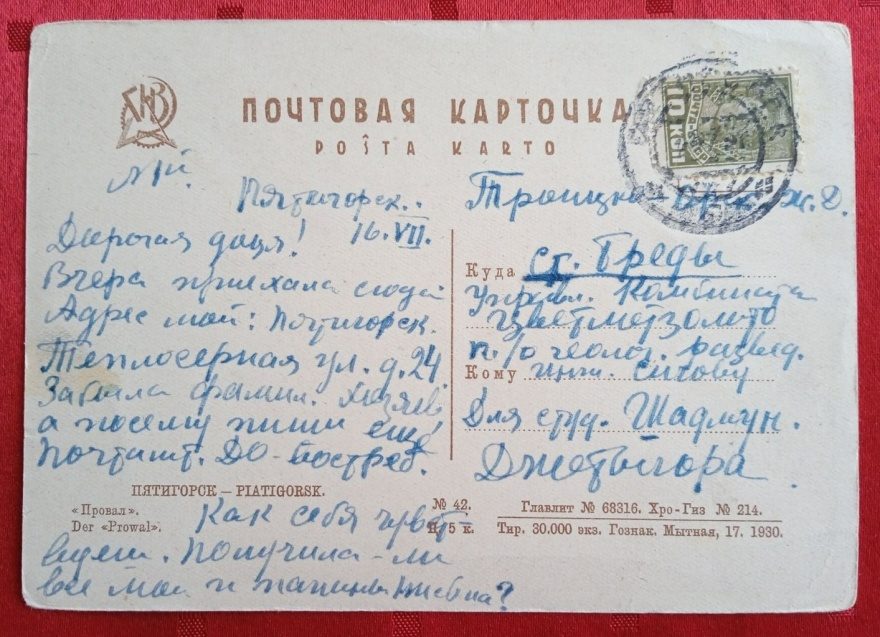 ПОЧТОВАЯ КАРТОЧКА
POŜTA KARTO
10 КОП
№1й.
Пятигорск..
16.VII.
Дорогая доця!
Вчера приехала сюда
Адрес мой: Пятигорск.
Теплосерная ул. д. 24
Забыла фамил. хозяев
а посему пиши ещё
Почтамт. До-востреб.
Как себя чувст-
вуешь. Получила-ли
все мои и папины письма?
Троицко-Орск. ж.д.
Куда ст. Бреды
Управл. Комбината
Цветметзолото
п/о геолог. развед.
Кому инж.
Для студ. Шадмун.
Джетыгора
ПЯТИГОРСК – PIATIGORSK.
«Провал».
Der «Prowal».
№ 42.
Ц. 5 к.
Главлит № 68316. Хро-Гиз № 214.
Тир. 30.000 экз. Гознак. Мытная, 17. 1930.